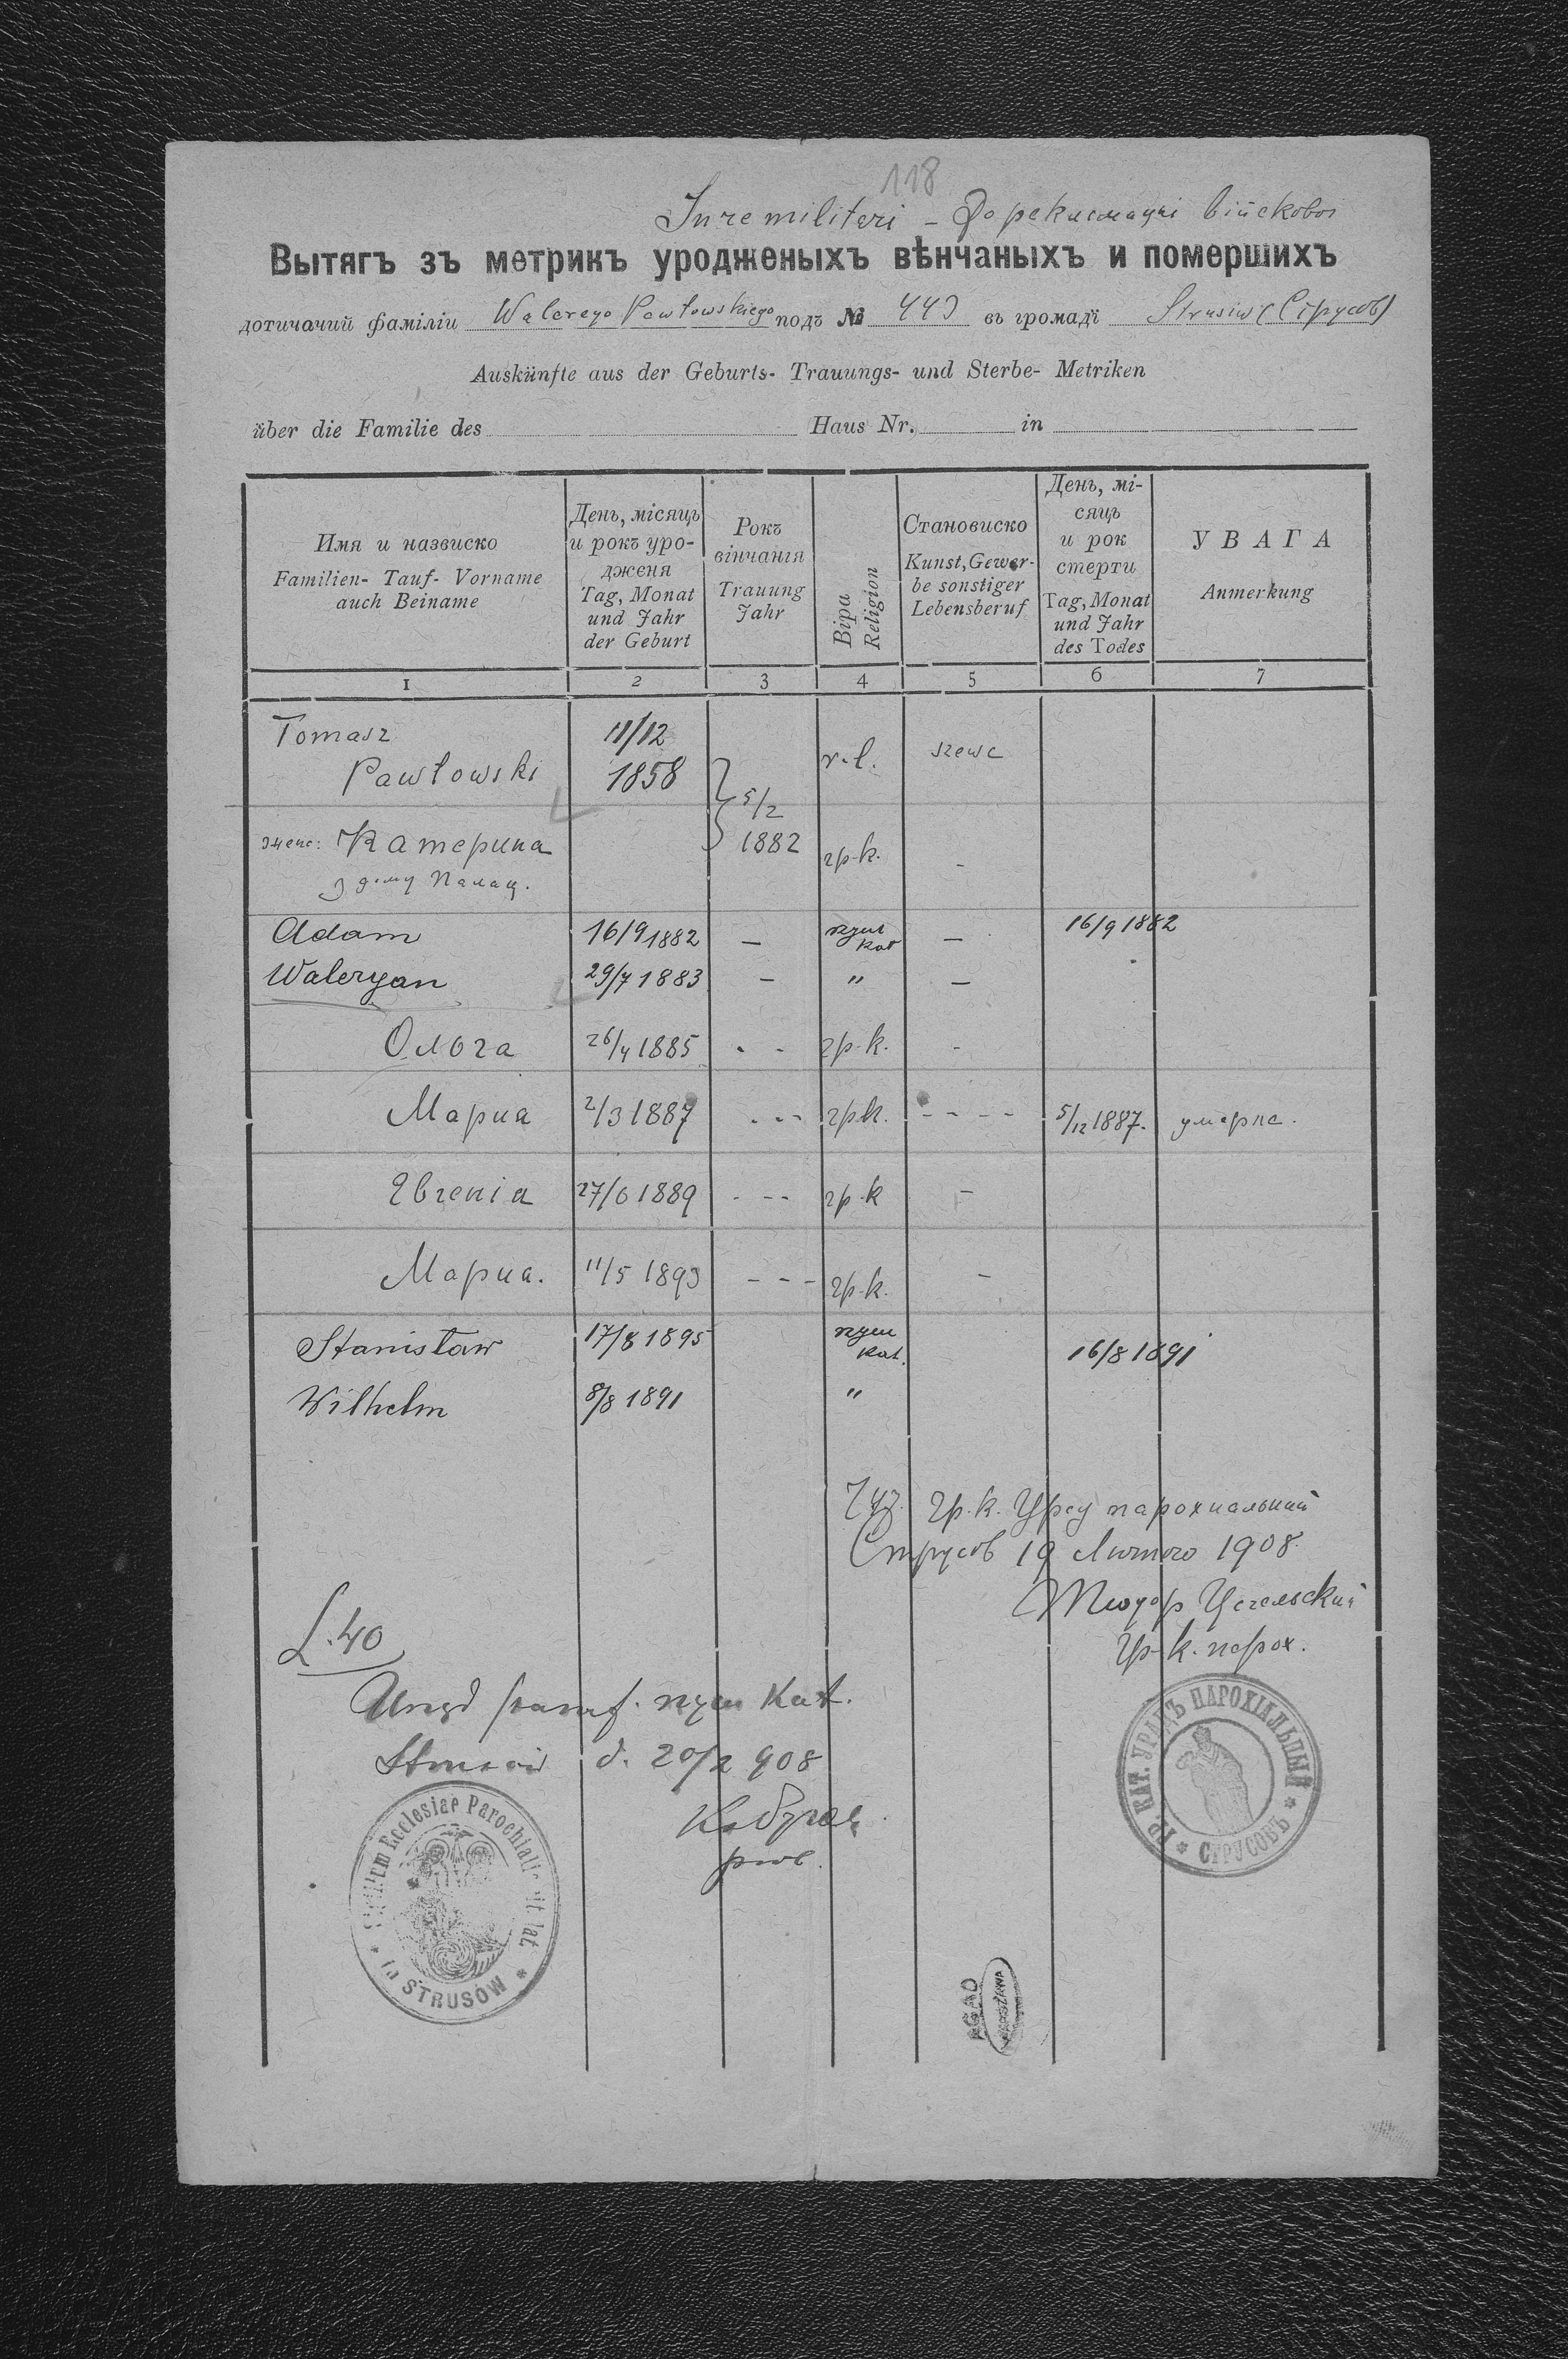 118
In re militari – До рекламациї військової
Вытягъ зъ метрикъ уродженыхъ вѣнчаныхъ и помершихъ
дотичачий фаміліи Walerego Pawłowskiego подъ № 443 въ громадї Strusiw (Струсов)
Auskünfte aus der Geburts- Trauungs- und Sterbe- Metriken
über die Familie des Haus Nr. in
Имя и назвиско
Familien- Tauf- Vorname
auch Beiname
День, місяць
и рокъ уро-
дженя
Tag, Monat
und Jahr
der Geburt
Рокъ
вінчанія
Trauung
Jahr
Віра
Religion
Становиско
Kunst, Gewer-
be sonstiger
Lebensberuf
День, мі-
сяць
и рок
смерти
Tag, Monat
und Jahr
des Todes
УВАГА
Anmerkung
1 2 3 4 5 6 7
Tomasz
Pawłowski
11/12
1858
5/2
1882
r. l. szewc
жена: Катерина
з дому Палац. гр-к. -
Adam 16/9 1882 – rzym kat – 16/9 1882
Waleryan 29/7 1883 – " –
Ольга 26/4 1885 - - гр-к. -
Мариа 2/3 1887 - - - гр.к. - - - - 5/12 1887. умерла.
Евгениа 27/6 1889 - - - гр-к –
Мариа. 11/5 1893 - - - гр-к. –
Stanisław 17/8 1895 rzym kat. 16/8 1891
Wilhelm 8/8 1891 "
гр. к. Уряд парохиальний
Струсов 19 Лютого 1908.
Теодор Цегельский
гр-к. парох.
L. 40
Urząd paraf. rzym kat.
Strusów d. 20/2 908
ГР. КАТ. УРЯДЪ ПАРОХІАЛЬНЫЙ * СТРУСОВЪ *
Sigillum Ecclesiae Parochialis rit. lat. * in STRUSÓW *
AGAD
WARSZAWA